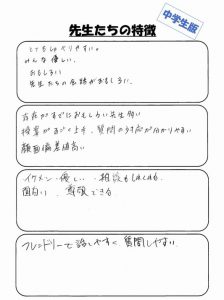 先生たちの特徴
中学生版
とてもしゃべりやすい。
みんな優しい。
おもしろい
先生たちの会話がおもしろい。
存在がすでにおもしろい先生多い
授業がすごく上手、質問の対応が分かりやすい
顔面偏差値高い
イケメン・優しい・相談ものってくれる
面白い、尊敬できる
フレンドリーで話しやすく、質問しやすい